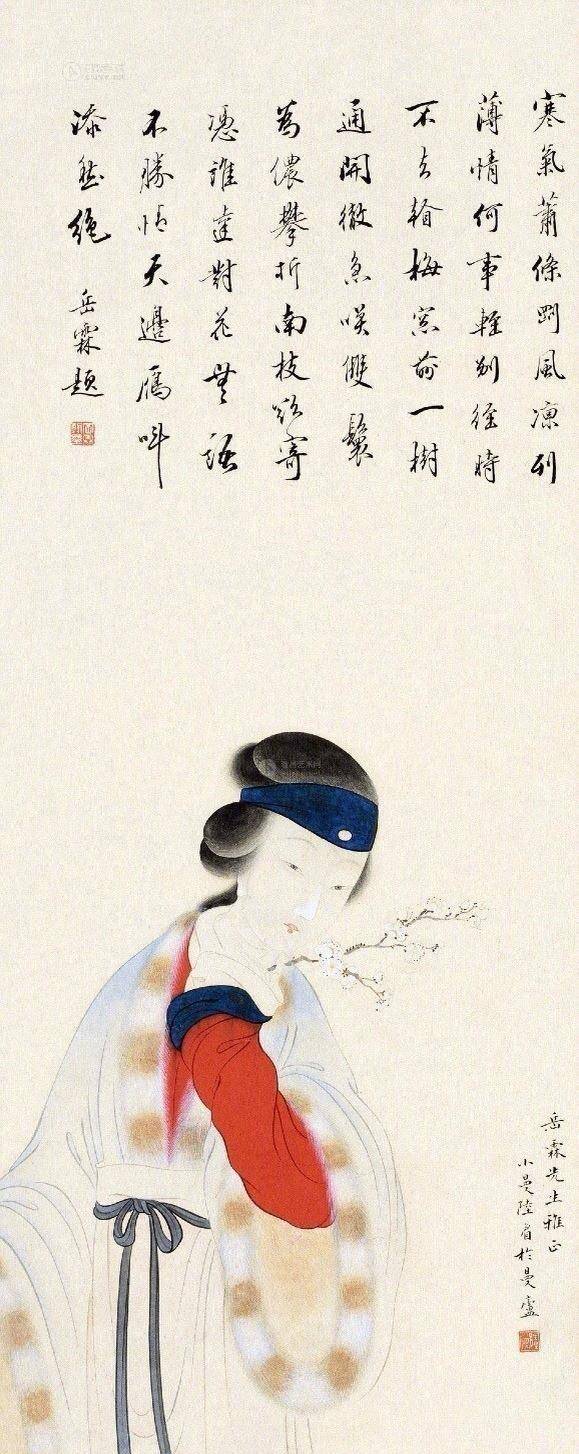 寒氣蕭條剛風凛列
薄情何事輕別經時
不去看梅窓前一樹
通開徹急喚雙鬟
為儂攀折南枝欲寄
憑誰達對花無語
不勝情天邊鴈叫
添愁絕
岳霖題
岳霖先生雅正
小曼陸眉於曼盧